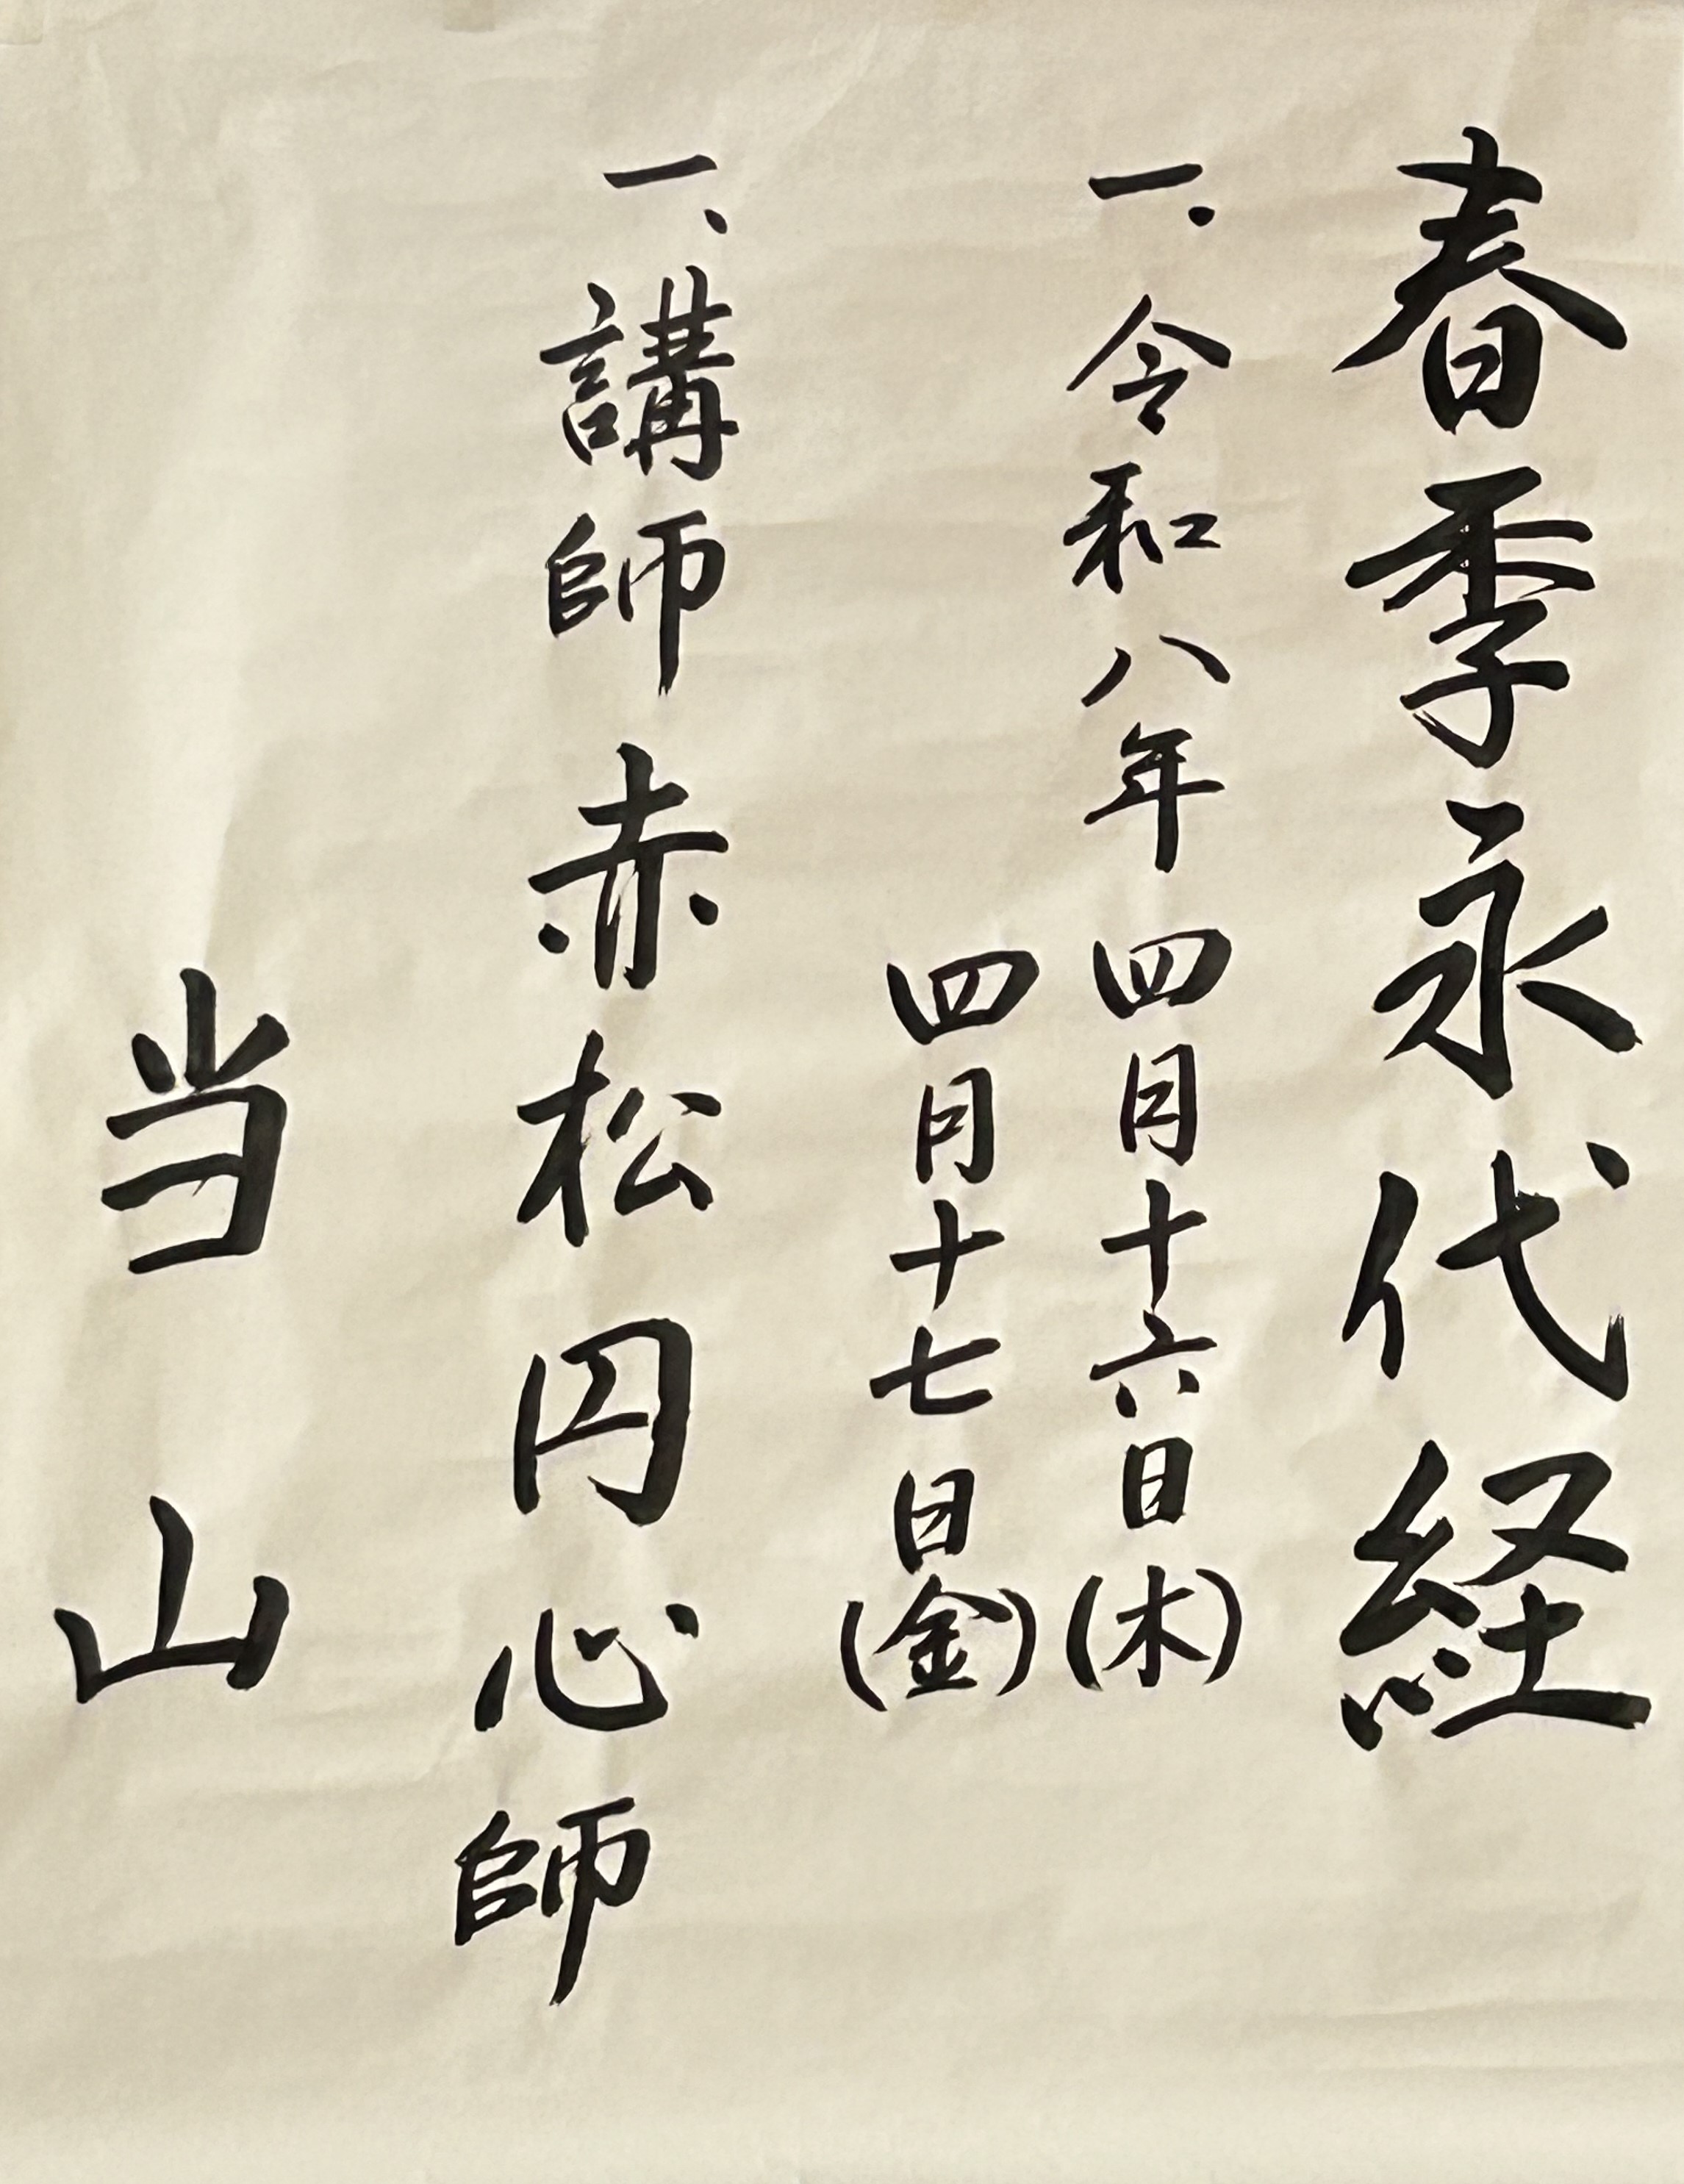 春季永代経
一、令和八年四月十六日(木)
四月十七日(金)
一、講師赤松円心師
当山